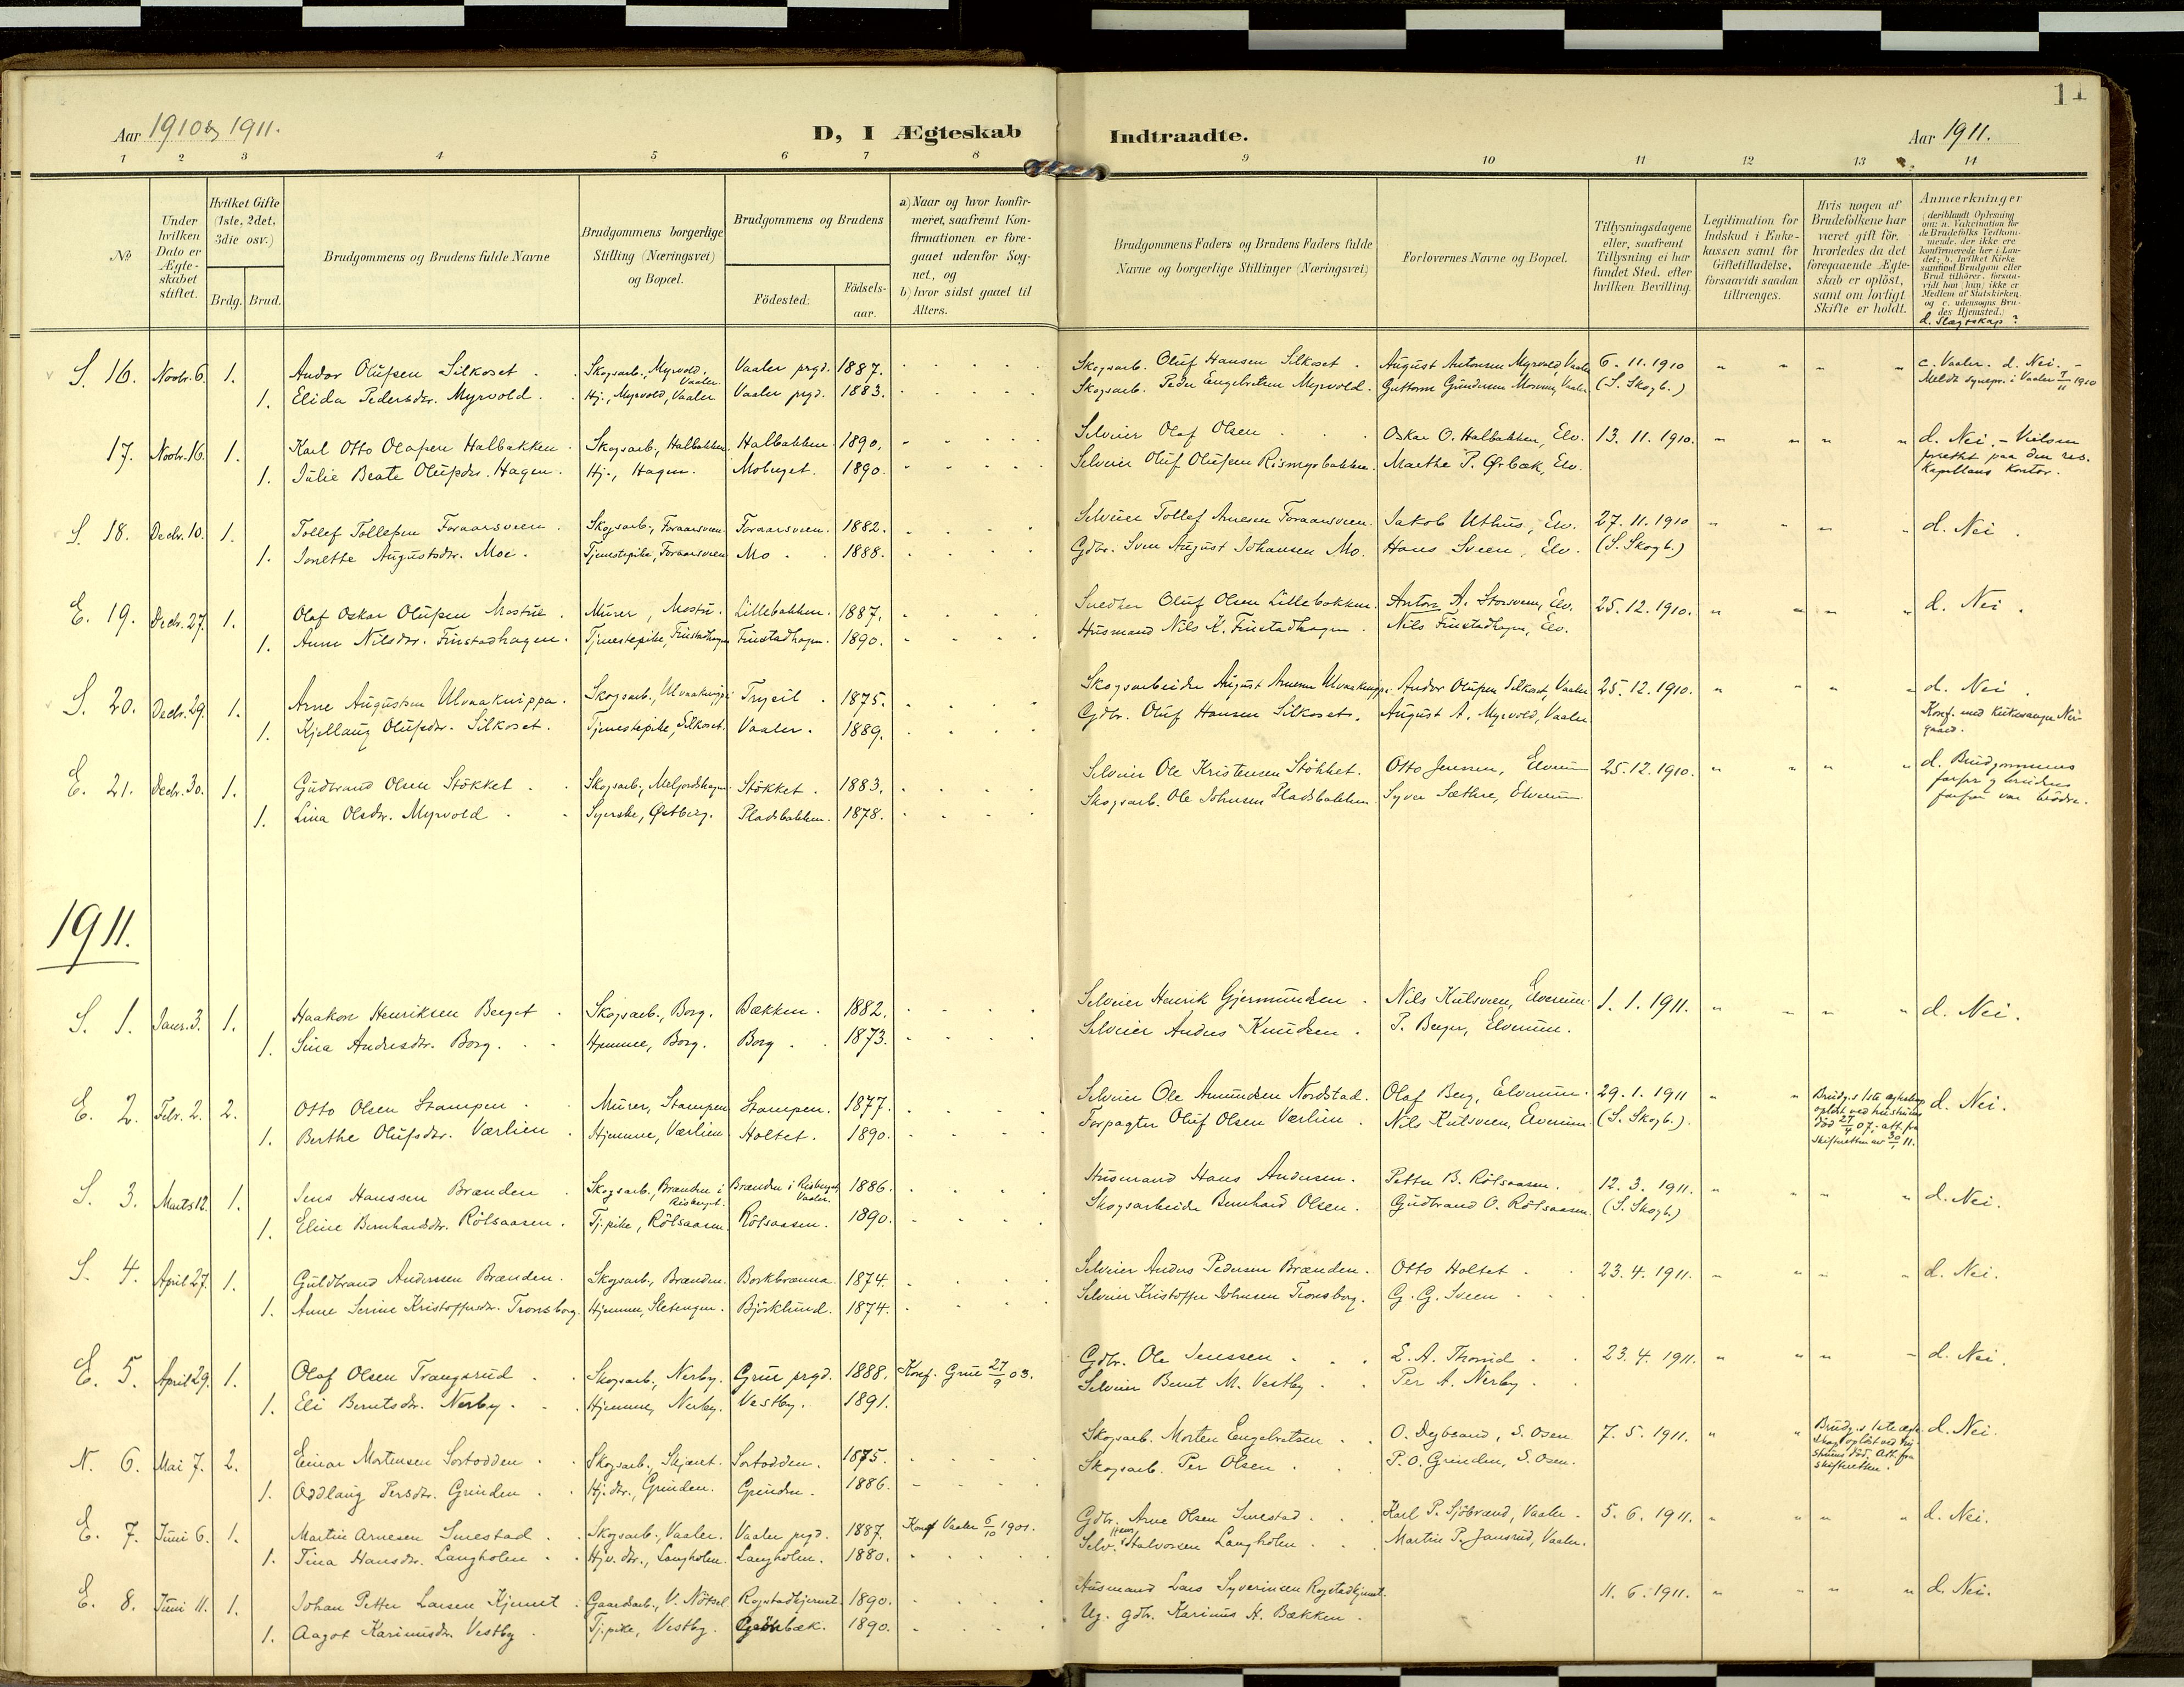 11
Aar 1910 & 1911.
D, I Ægteskab
Indtraadte.
Aar 1911.
1 2 3 4 5 6 7 8 9 10 11 12 13 14
No
Under hvilken Dato er Ægteskabet stiftet.
Hvilket Gifte (1ste, 2det, 3die osv.)
Brdg. Brud.
Brudgommens og Brudens fulde Navne
Brudgommens borgerlige Stilling (Næringsvei) og Bopæl.
Brudgommens og Brudens
Födested:
Födsels-aar.
a) Naar og hvor konfirmeret, saafremt Konfirmationen er foregaaet udenfor Sognet, og
b) hvor sidst gaaet til Alters.
Brudgommens Faders og Brudens Faders fulde Navne og borgerlige Stillinger (Næringsvei)
Forlovernes Navne og Bopæl.
Tillysningsdagene eller, saafremt Tillysning ei har fundet Sted, efter hvilken Bevilling.
Legitimation for Indskud i Enkekassen samt for Giftetilladelse, forsaavidt saadan tiltrænges.
Hvis nogen af Brudefolkene har været gift för, hvorledes da det foregaaende Ægteskab er oplöst, samt om lovligt Skifte er holdt.
Anmærkninger (deriblandt Oplysning om: a. Vakcination for de Brudefolks Vedkommende, der ikke ere konfirmerede her i Landet; b. hvilket Kirkesamfund Brudgom eller Brud tilhörer, forsaavidt han (hun) ikke er Medlem af Statskirken, og c. udensogns Brudes Hjemsted.)
d. Slægtskap?
S. 16. Novbr. 6. 1. Andor Olufsen Silkoset. Skogsarb., Myrvold, Vaaler. Vaaler prgd. 1887. Skogsarb. Oluf Hansen Silkoset. August Antonsen Myrvold, Vaaler 6. 11. 1910 c. Vaaler. d. Nei. -
1. Elida Pedersdtr. Myrvold. Hj., Myrvold, Vaaler Vaaler prgd. 1883. Skogsarb. Peder Engebretsen Myrvold. Guttorm Gundersen Vaaler (S. Skogb.) Meldt sognepr. i Vaaler 7/11 1910
17. Novbr. 16. 1. Karl Otto Olafsen Halbakken. Skogsarb., Halbakken. Halbakken. 1890. Selveier Olaf Olsen. Oskar O. Halbakken, Elv. 13. 11. 1910. d. Nei. - Vielsen
1. Julie Beate Olufsdtr. Hagen. Hj., Hagen. Moberget. 1890. Selveier Oluf Olufsen Rismyrbakken. Marthe P. Ørbæk, Elv. forrettet paa den res. kapellans kontor.
S. 18. Decbr. 10. 1. Tollef Tollefsen Foraarsveen. Skogsarb., Foraarsveen. Foraarsveen. 1882. Selveier Tollef Arnesen Foraarsveen. Jakob Uthus, Elv. 27. 11. 1910 d. Nei.
1. Jonette Augustsdtr. Moe. Tjenestepike, Foraarsveen Mo. 1888. Gdbr. Sven August Johansen Mo. Hans Sveen, Elv. (S. Skogb.)
E. 19. Decbr. 27. 1. Olaf Oskar Olufsen Mostue. Murer, Mostu. Lillebakken. 1887. Snedker Oluf Olsen Lillebakken. Anton A. Storsveen, Elv. 25. 12. 1910. d. Nei.
1. Anne Nilsdtr. Finstadhagen. Tjenestepike, Finstadhagen Finstadhagen. 1890. Husmand Nils K. Finstadhagen. Nils Finstadhagen, Elv.
S. 20. Decbr. 29. 1. Arne Augustsen Ulvaaknippa. Skogsarb., Ulvaaknippa Trysil. 1875. Skogsarbeider August Arnesen Ulvaaknippa. Andor Olufsen Silkoset, Vaaler 25. 12. 1910. d. Nei.
1. Kjellaug Olufsdtr. Silkoset. Tjenestepike, Silkoset. Vaaler. 1889. Gdbr. Oluf Hansen Silkoset. August A. Myrvold, Vaaler Konf. med kirkesanger Neigaard.
E. 21. Decbr. 30. 1. Gudbrand Olsen Stökket. Skogsarb., Meljordshagen. Stökket. 1883. Selveier Ole Kristensen Stökket. Otto Jensen, Elverum 25. 12. 1910. d. Brudgommens farfar og brudens farfar var brödre.
1. Lina Olsdtr. Myrvold. Syerske, Østberg. Pladsbakken. 1878. Skogsarb. Ole Johnsen Pladsbakken. Syver Sæthre, Elverum
1911.
S. 1. Janr. 3. 1. Haakon Henriksen Berget. Skogsarb., Borg. Bækken. 1882. Selveier Henrik Gjermundsen. Nils Kulsveen, Elverum. 1. 1. 1911. d. Nei.
1. Sina Andersdtr. Borg. Hjemme, Borg. Borg. 1873. Selveier Anders Knudsen. P. Berger, Elverum.
E. 2. Febr. 2. 2. Otto Olsen Stampen. Murer, Stampen Stampen. 1877. Selveier Ole Amundsen Nordstad. Olaf Berg, Elverum. 29. 1. 1911 Brudg.s 1ste egteskap oplöst ved hustruens död 27/4 07, - att. fra skifteretten av 30/1 11. d. Nei.
1. Berthe Olufsdtr. Værlien. Hjemme, Værlien. Holtet. 1890. Forpagter Oluf Olsen Værlien. Nils Kulsveen, Elverum. (S. Skogb.).
S. 3. Marts 12. 1. Jens Hanssen Brænden. Skogsarb., Brænden i Risberget. Brænden i Risberget, Vaaler. 1886. Husmand Hans Andersen. Petter B. Rölsaasen. 12. 3. 1911. d. Nei.
1. Eline Bernhardsdtr. Rölsaasen. Tj.pike, Rölsaasen. Rölsaasen. 1890. Skogsarbeider Bernhard Olsen. Gudbrand O. Rölsaasen. (S. Skogb.)
S. 4. April 27. 1. Guldbrand Anderssen Brænden. Skogsarb., Brænden. Borkbrænna. 1874. Selveier Anders Pedersen Brænden. Otto Holtet. 23. 4. 1911. d. Nei.
1. Anne Serine Kristoffersdtr. Tronsborg. Hjemme, Sletengen. Björklund. 1874. Selveier Kristoffer Johnsen Tronsborg. G. G. Sveen
E. 5. April 29. 1. Olaf Olsen Trangsrud. Skogsarb., Nerby. Grue prgd. 1888. Konf. Grue 27/9 03. Gdbr. Ole Jenssen. E. A. Thorud. 23. 4. 1911. d. Nei.
1. Eli Berntsdtr. Nerby. Hjemme, Nerby. Vestby. 1891. Selveier Bernt M. Vestby. Per A. Nerby.
N. 6. Mai 7. 2. Einar Mortensen Sortodden. Skogsarb., Skjæret. Sortodden. 1875. Skogsarb. Morten Engebretsen. O. Degbrand, S. Osen. 7. 5. 1911. Brudg.s 1ste egteskap oplöst ved hustruens död. Att. fra skifteretten. d. Nei.
1. Oddlaug Persdtr. Grinden. Hj. dtr., Grinden. Grinden. 1886. Skogsarb. Per Olsen. P. O. Grinden, S. Osen.
E. 7. Juni 6. 1. Martin Arnesen Smestad. Skogsarb., Vaaler. Vaaler prgd. 1887. Konf Vaaler 6/10 1901. Gdbr. Arne Olsen Smestad. Karl P. Sjöbrænd, Vaaler. 5. 6. 1911. d. Nei.
1. Tina Hansdtr. Langholen. Hjv. dtr., Langholen. Langholen. 1880. Selv. Hans Halvorsen Langholen. Martin P. Jansrud, Vaaler.
E. 8. Juni 11. 1. Johan Petter Larsen Kjernet. Gaardsarb., V. Nötsel Rogstadkjernet. 1890. Husmand Lars Syverinsen Rogstadkjernet. 11. 6. 1911. d. Nei.
1. Aagot Karinusdtr. Vestby. Tj.pike, Vestby. 1890. Ug. gdbr. Karinus H. Bækken.